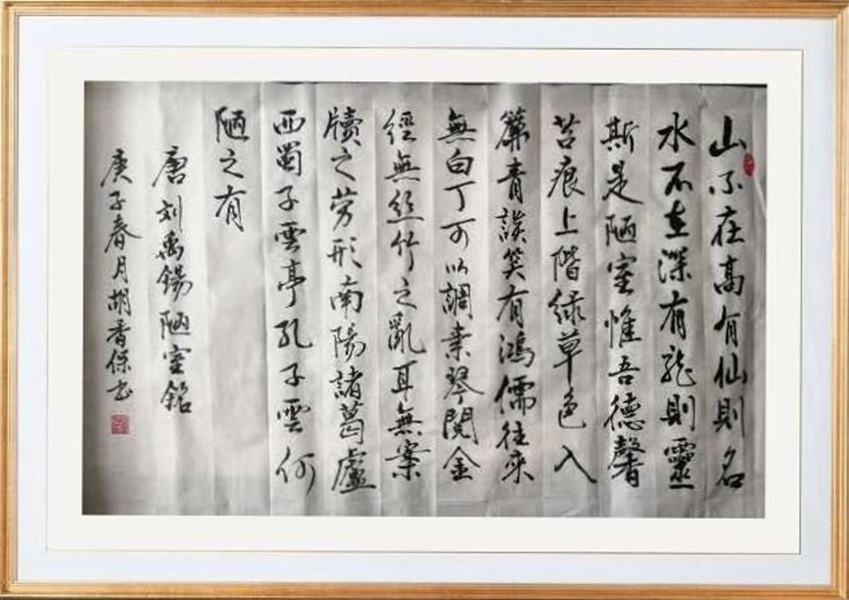 山不在高有仙則名
水不在深有龍則靈
斯是陋室惟吾德馨
苔痕上階緑草色入
簾青談笑有鴻儒往來
無白丁可以調素琴閱金
經無絲竹之亂耳無案
牘之劳形南陽諸葛廬
西蜀子雲亭孔子雲何
陋之有
唐刘禹錫陋室銘
庚子春月胡香保书